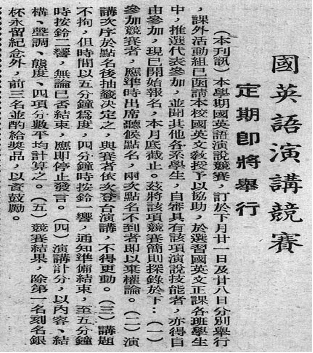 國英語演講競賽
定期即將舉行
（本刊訊）本學期國英語演說競賽，訂於下月廿一日及廿八日分別舉行
，課外活動組已函請本校國英文教授予以協助，於選習國英文正課各班學生
中，推選代表參加，並聞其他各系學生，自審具有該項演說技能者，亦得自
由參加，現已開始報名，本月底截止。茲將該項競賽簡則探錄於下：（一）
參加競賽者，應準時出席聽候點名，兩次點名不到者即以棄權論。（二）演
講次序於點名後抽籤決定之，與賽者依次登台演講，不得更動。（三）講題
不拘，但時間以五分鐘為度，四分鐘時按鈴一響，通知準備結束，至五分鐘
時按鈴二響，無論已否結束，應即停止發言。（四）演講計分，以內容、結
構、聲調、態度、四項分數平均計算之。（五）競賽結果，除第一名刻名銀
杯永留紀念外，前三名並酌給獎品，以資鼓勵。